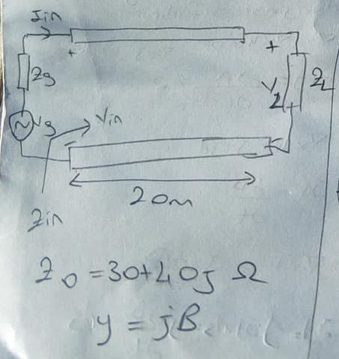 Iin
+ +
Zg
V2 ZL
Vg Vin
20m
Zin
Z0 = 30+40j Ω
y = jB